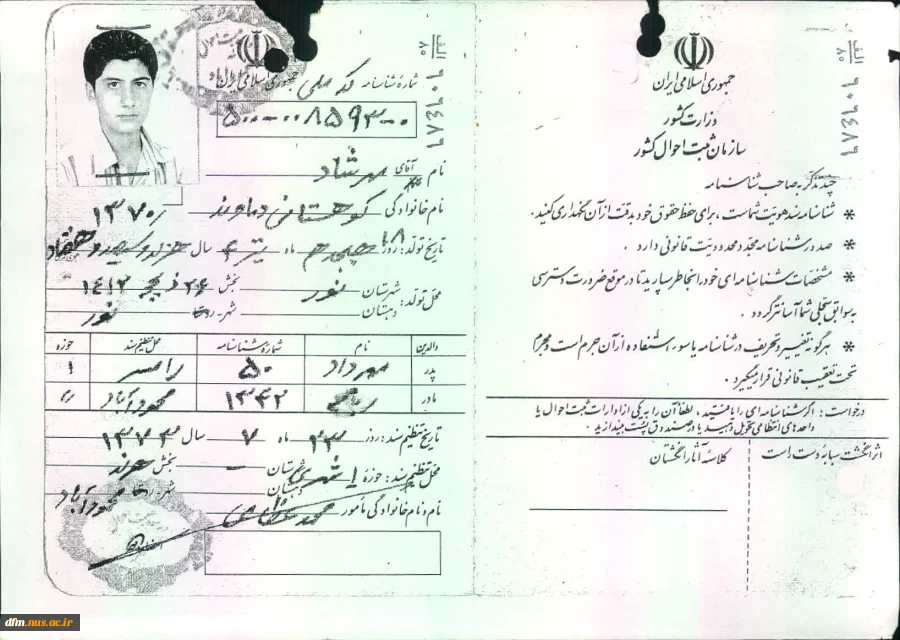 جمهوری اسلامی ایران
وزارت کشور
سازمان ثبت احوال کشور
چند تذکر به صاحب شناسنامه
* شناسنامه سند هویت شماست، برای حفظ حقوق خود بدقت از آن نگهداری کنید.
* صدور شناسنامه مجدد محدودیت قانونی دارد.
* مشخصات شناسنامه ای خود را بخاطر بسپارید تا در موقع ضرورت دسترسی
به سوابق سجلی شما آسانتر گردد.
* هرگونه تغییر و تحریف در شناسنامه یا سوء استفاده از آن جرم است و مجرم
تحت تعقیب قانونی قرار میگیرد.
درخواست: اگر شناسنامه ای را یافتید، لطفاً آن را به یکی از ادارات ثبت احوال یا
واحدهای انتظامی تحویل دهید یا در صندوق پست بیندازید.
اثر انگشت سبابه دست راست
کلاسه آثار انگشتان
الف
۸۰
جمهوری اسلامی ایران
شماره شناسنامه
۵۰۰۰-۰۰۸۵۹۳-۰۰
نام آقای مهرشاد
نام خانوادگی کوهستانی دماوند
۱۳۷۰/
تاریخ تولد: روز ۱۸ ماه تیر ۴ سال هزار و سیصد و هفتاد
محل تولد: شهرستان نور بخش
دهستان شهر نور
والدین نام شماره شناسنامه محل تنظیم سند حوزه
پدر مهرداد ۵۰ رامسر ۱
مادر ۱۳۴۲ محمودآباد
تاریخ تنظیم سند: روز ۲۳ ماه ۷ سال ۱۳۷۳
محل تنظیم سند: حوزه ۱ شهری شهرستان بخش
دهستان شهر محمودآباد
نام و نام خانوادگی مامور
dfm.nus.ac.ir